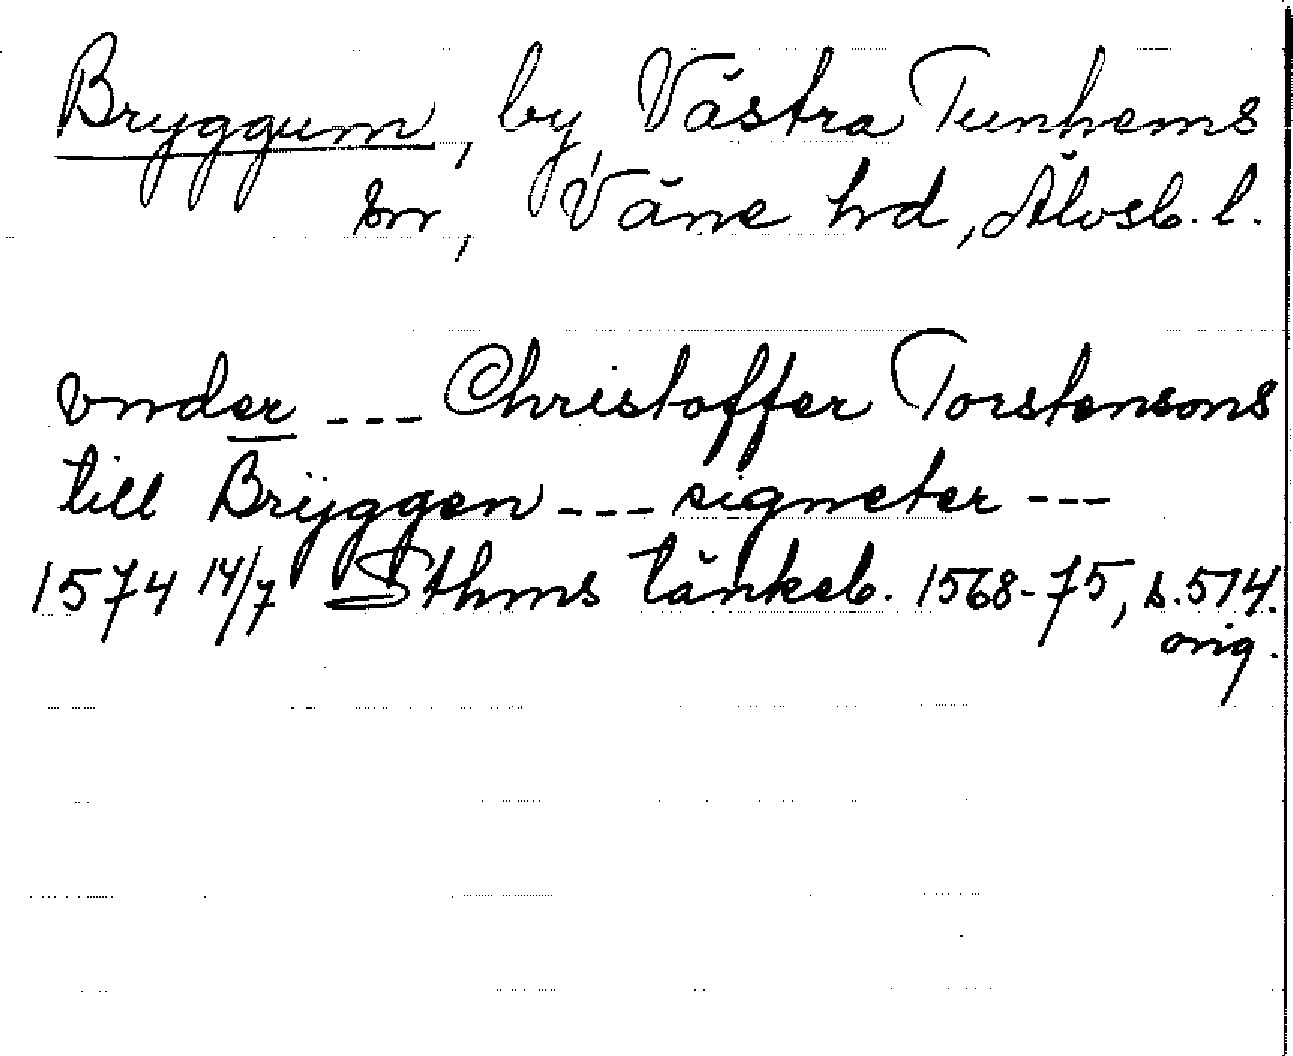 Bryggum, by Västra Tunhems
sn, Väne hd, Älvsb. l.
vnder --- Christoffer Torstensons
till Brÿggen --- signeter ---
1574 14/7 Sthms tänkeb. 1568-75, s. 574.
orig.